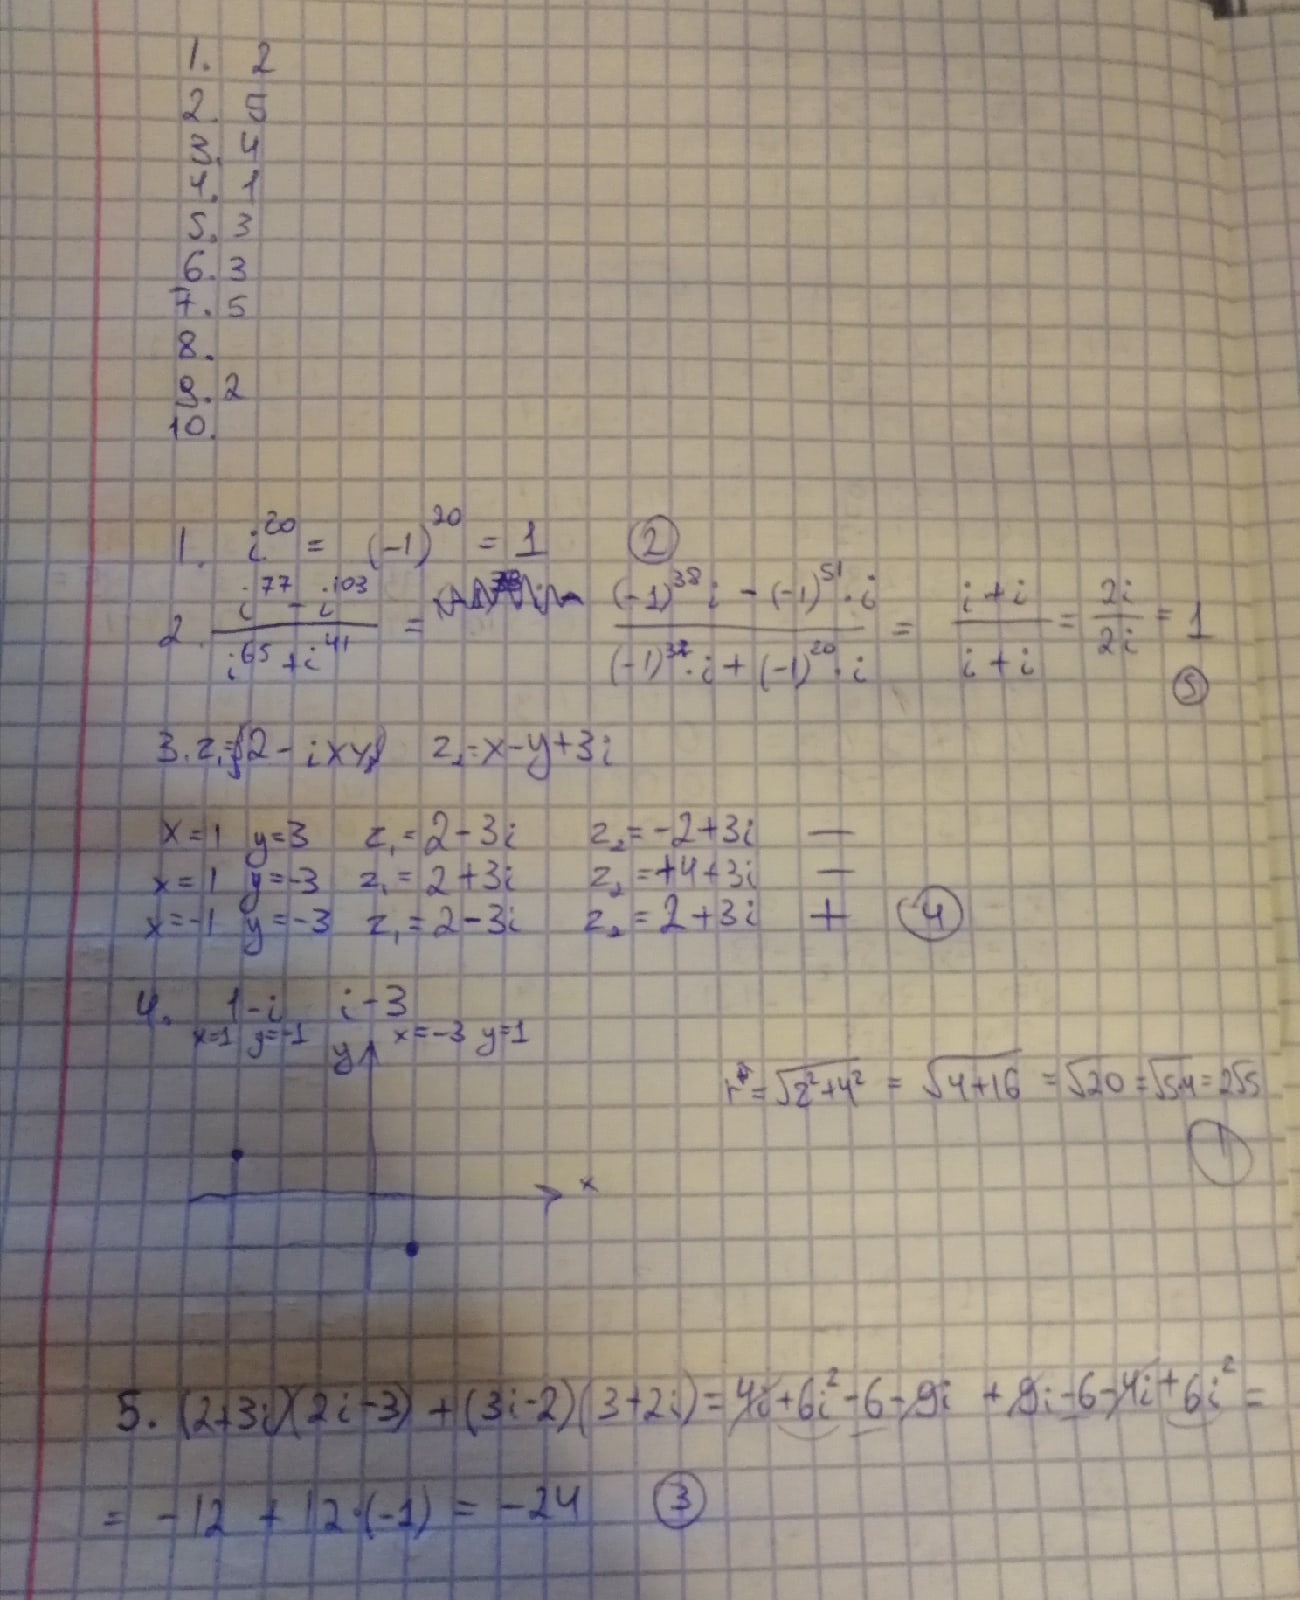 1. 2
2. 5
3. 4
4. 1
5. 3
6. 3
7. 5
8.
9. 2
10.
1. i^20 = (-1)^20 = 1 ②
2. (i^77 - i^103)/(i^65 + i^41) = ((-1)^38 i - (-1)^51 · i)/((-1)^32 · i + (-1)^20 · i) = (i + i)/(i + i) = 2i/2i = 1
⑤
3. z₁ = 2 - ixy z₂ = x - y + 3i
x = 1 y = 3 z₁ = 2 - 3i z₂ = -2 + 3i —
x = 1 y = -3 z₁ = 2 + 3i z₂ = +4 + 3i —
x = -1 y = -3 z₁ = 2 - 3i z₂ = 2 + 3i + ④
4. 1 - i i - 3
x = 1 y = -1 x = -3 y = 1
y
r = √(2² + 4²) = √(4 + 16) = √20 = √5·4 = 2√5
①
x
5. (2+3i)(2i-3) + (3i-2)(3+2i) = 4i + 6i² - 6 - 9i + 9i - 6 - 4i + 6i² =
= -12 + 12·(-1) = -24 ③